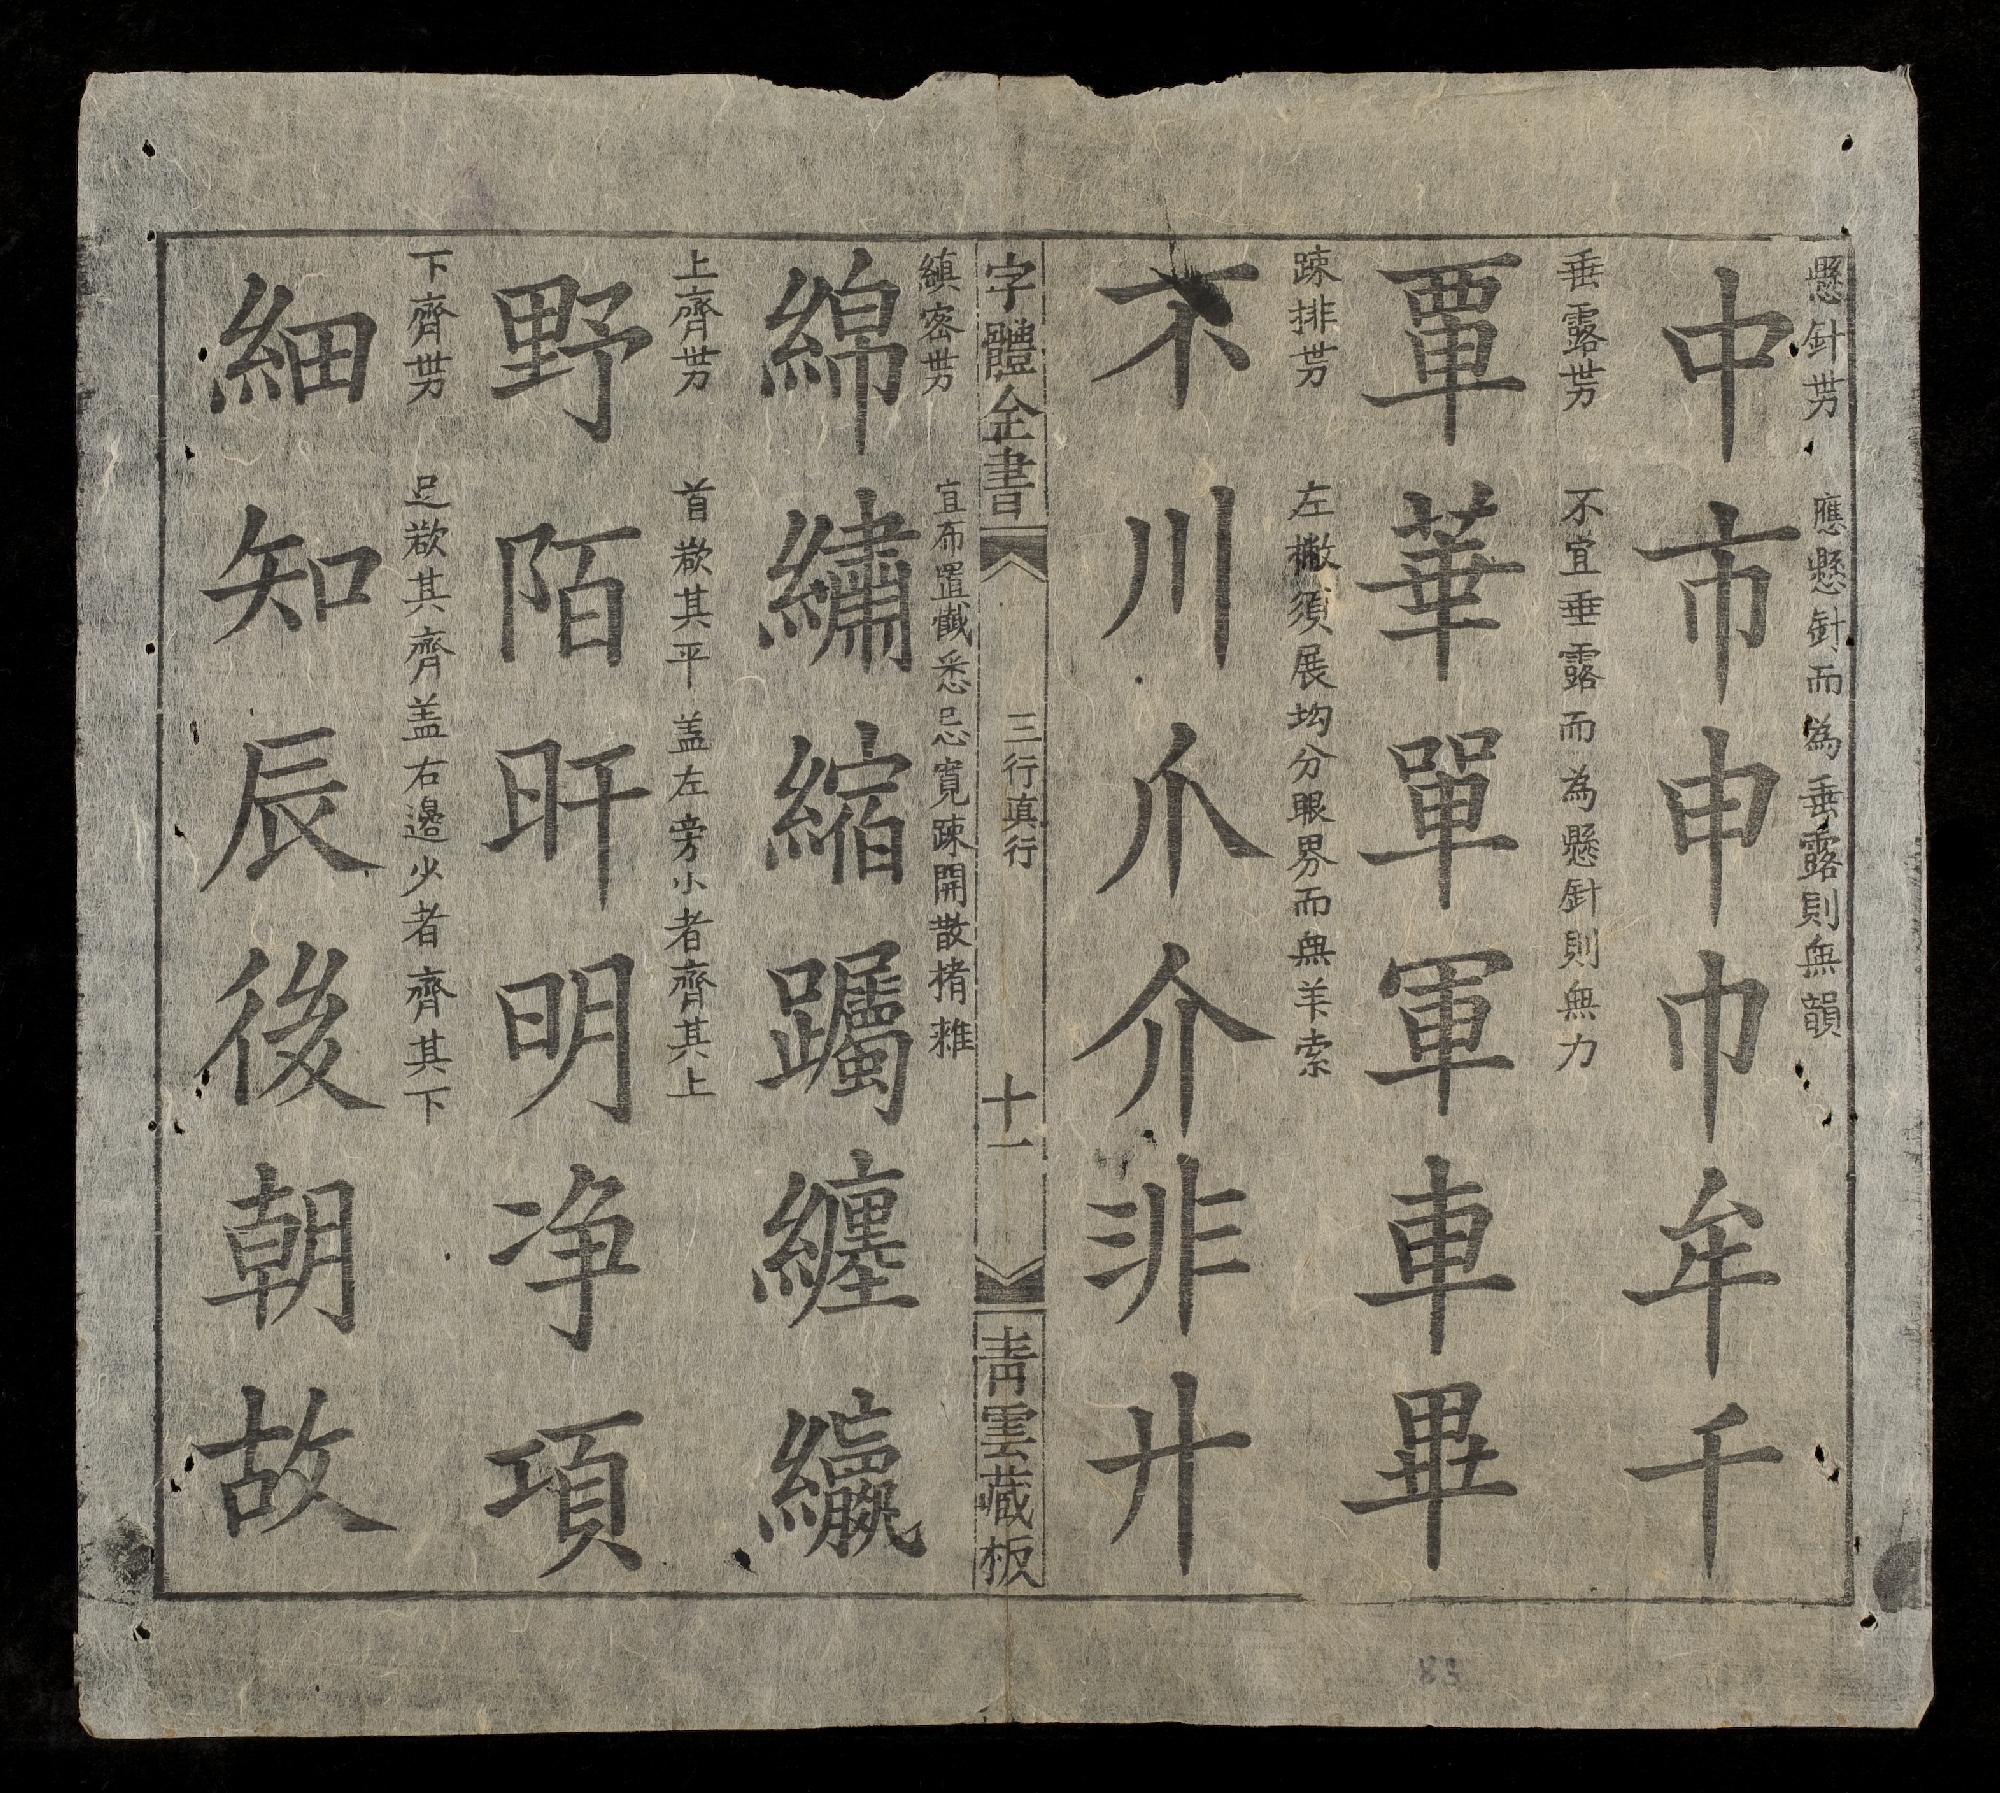 懸針勢 應懸針而為垂露則無韻
中市申巾牟千
垂露勢 不宜垂露而為懸針則無力
覃華單軍車畢
踈排勢 左撇須展均分眼界而無羊索
不川爪介非廾
字體全書 三行真行 十一 青雲藏板
縝密勢 宜布置懺悉忌寬踈開散楕雜
綿繡縮躅纏纊
上齊勢 首欲其平盖左旁小者齊其上
野陌旰明净項
下齊勢 足欲其齊盖右邊少者齊其下
細知辰後朝故
83